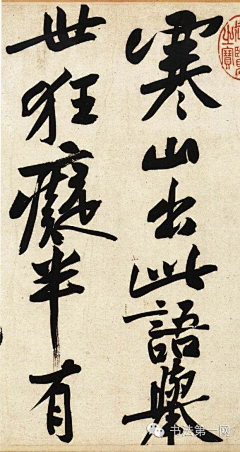 寒山出此語舉
世狂癡半有
书法第一网